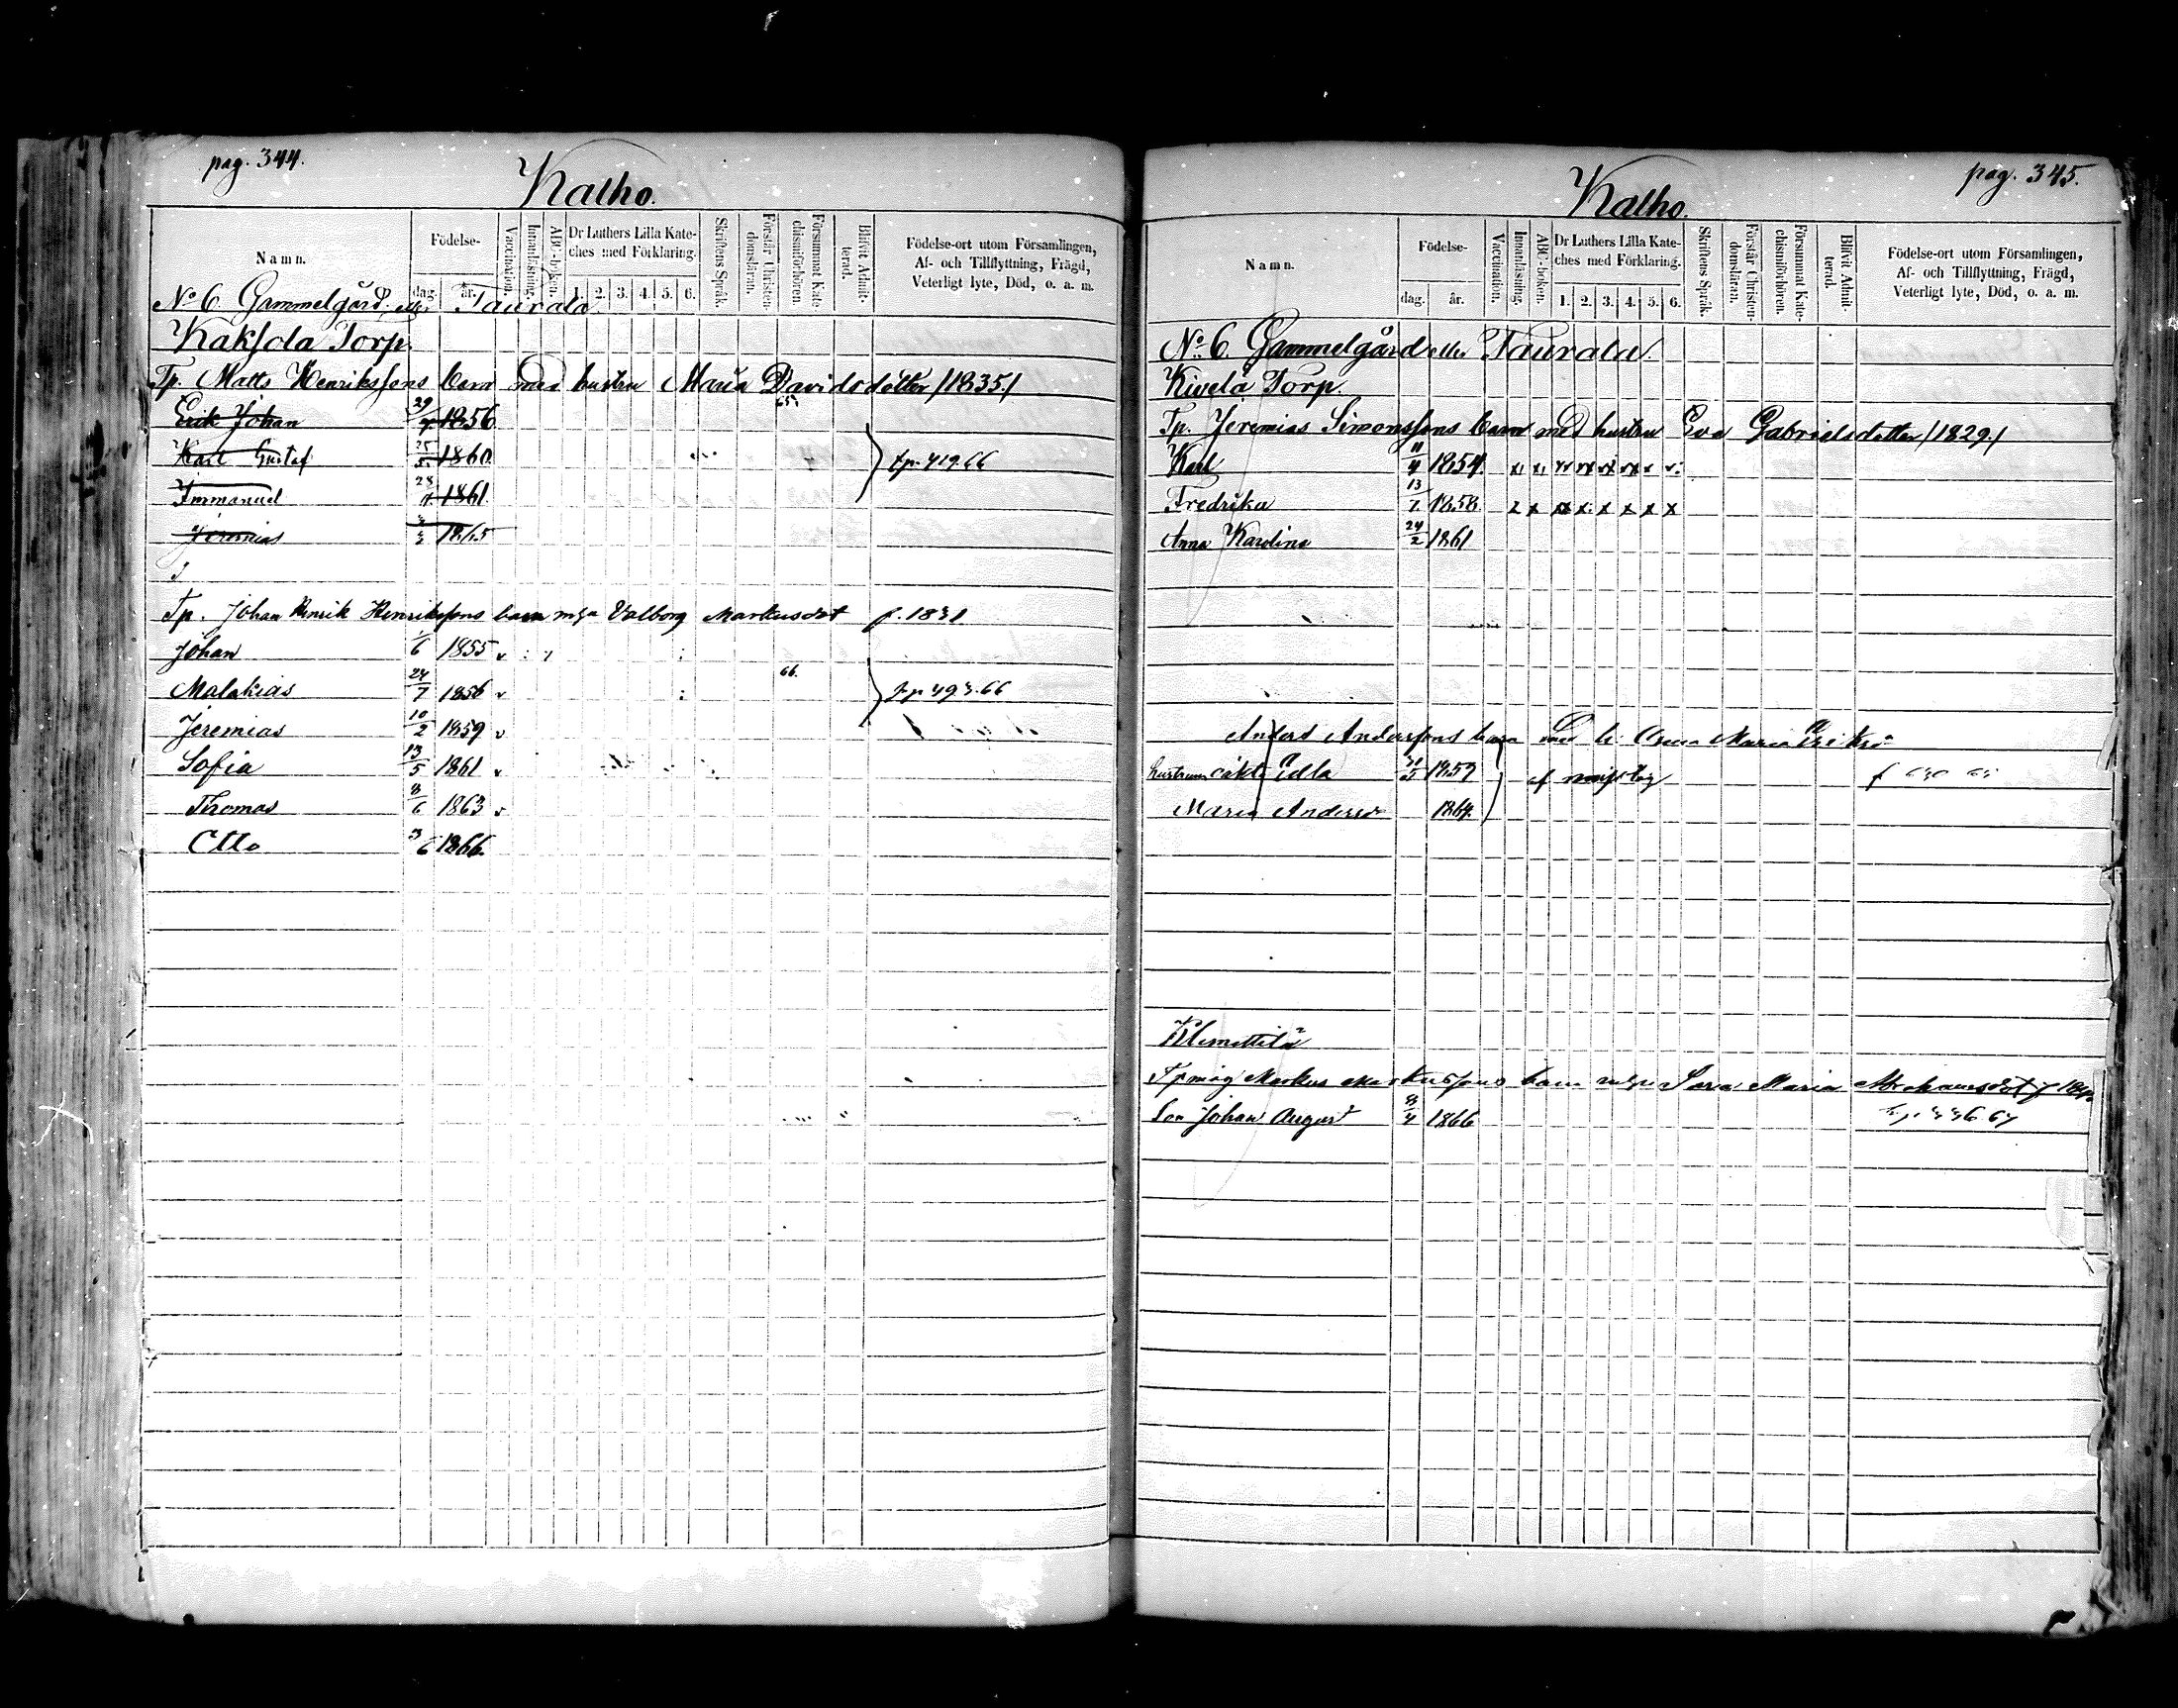 pag. 344.
Kalho.
Namn.
Födelse-
dag.
år.
Vaccination.
Innanläsning.
ABC-boken.
Dr Luthers Lilla Kate-
ches med Förklaring.
1. 2. 3. 4. 5. 6.
Skriftens Språk.
Förstår Christen-
domsläran.
Försummat Kate-
chismiförhören.
Blifvit Admit-
terad.
Födelse-ort utom Församlingen,
Af- och Tillflyttning, Frägd,
Veterligt lyte, Död, o. a. m.
No 6. Gammelgård, eller Taurala.
Kaksola Torp.
Tp. Matts Henrikssons barn med hustru Maria Davidsdotter /1835/
65
Erik Johan 29/7 1856
Karl Gustaf 25/5 1860 tp. 419. 66
Immanuel 28/11 1861
Jeremias 1865
Tp. Johan Henrik Henrikssons barn m h n Valborg Markusdot f. 1831
Johan /6 1855 v
66.
Malakias 24/7 1856 v tp 493. 66
Jeremias 10/2 1859 v
Sofia 13/5 1861 v
Thomas 8/6 1863 v
Otto 3/6 1866.
pag. 345.
Kalho.
Namn.
Födelse-
dag.
år.
Vaccination.
Innanläsning.
ABC-boken.
Dr Luthers Lilla Kate-
ches med Förklaring.
1. 2. 3. 4. 5. 6.
Skriftens Språk.
Förstår Christen-
domsläran.
Försummat Kate-
chismiförhören.
Blifvit Admit-
terad.
Födelse-ort utom Församlingen,
Af- och Tillflyttning, Frägd,
Veterligt lyte, Död, o. a. m.
No 6. Gammelgård eller Taurala.
Kivelä Torp.
Tp. Jeremias Simonssons barn med hustru Eva Gabrielsdotter /1829./
Karl 11/4 1854
Fredrika 13/7 1858 x x x x x x x
Anna Karolina 24/2 1861
Anders Anderssons barn med h. Anna Maria Eriksd
hustruns oäkt. Edla 1859 af misstag
Maria Andersd 1864.
Klemettilä
Tpmåg Markus Markussons barn Sara Maria Abrahamsdot f
Son Johan August 8/4 1866